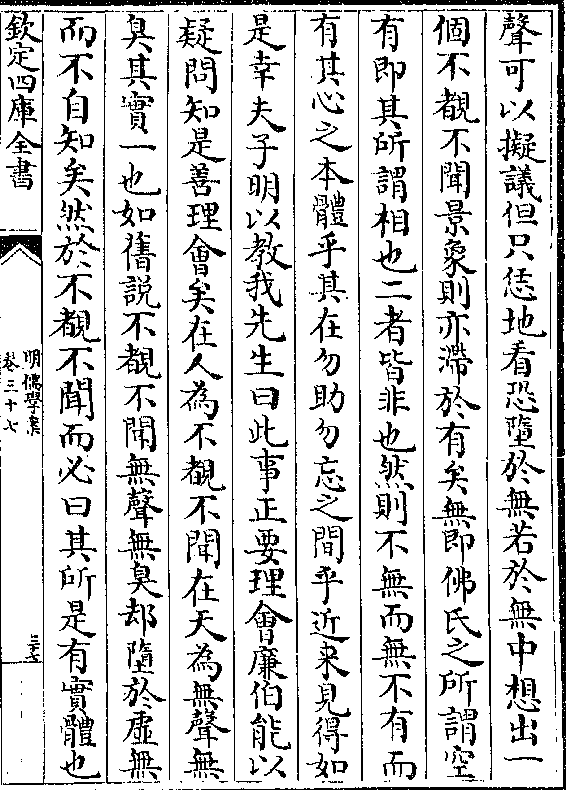 聲可以擬議但只恁地看恐墮於無若於無中想出一
個不覩不聞景象則亦滯於有矣無即佛氏之所謂空
有即其所謂相也二者皆非也然則不無而無不有而
有其心之本體乎其在勿助勿忘之間乎近来見得如
是幸夫子明以教我先生曰此事正要理會廉伯能以
疑問知是善理會矣在人為不覩不聞在天為無聲無
臭其實一也如舊説不覩不聞無聲無臭却墮於虛無
而不自知矣然於不覩不聞而必曰其所是有實體也
欽定四庫全書
明儒學案
卷三十七